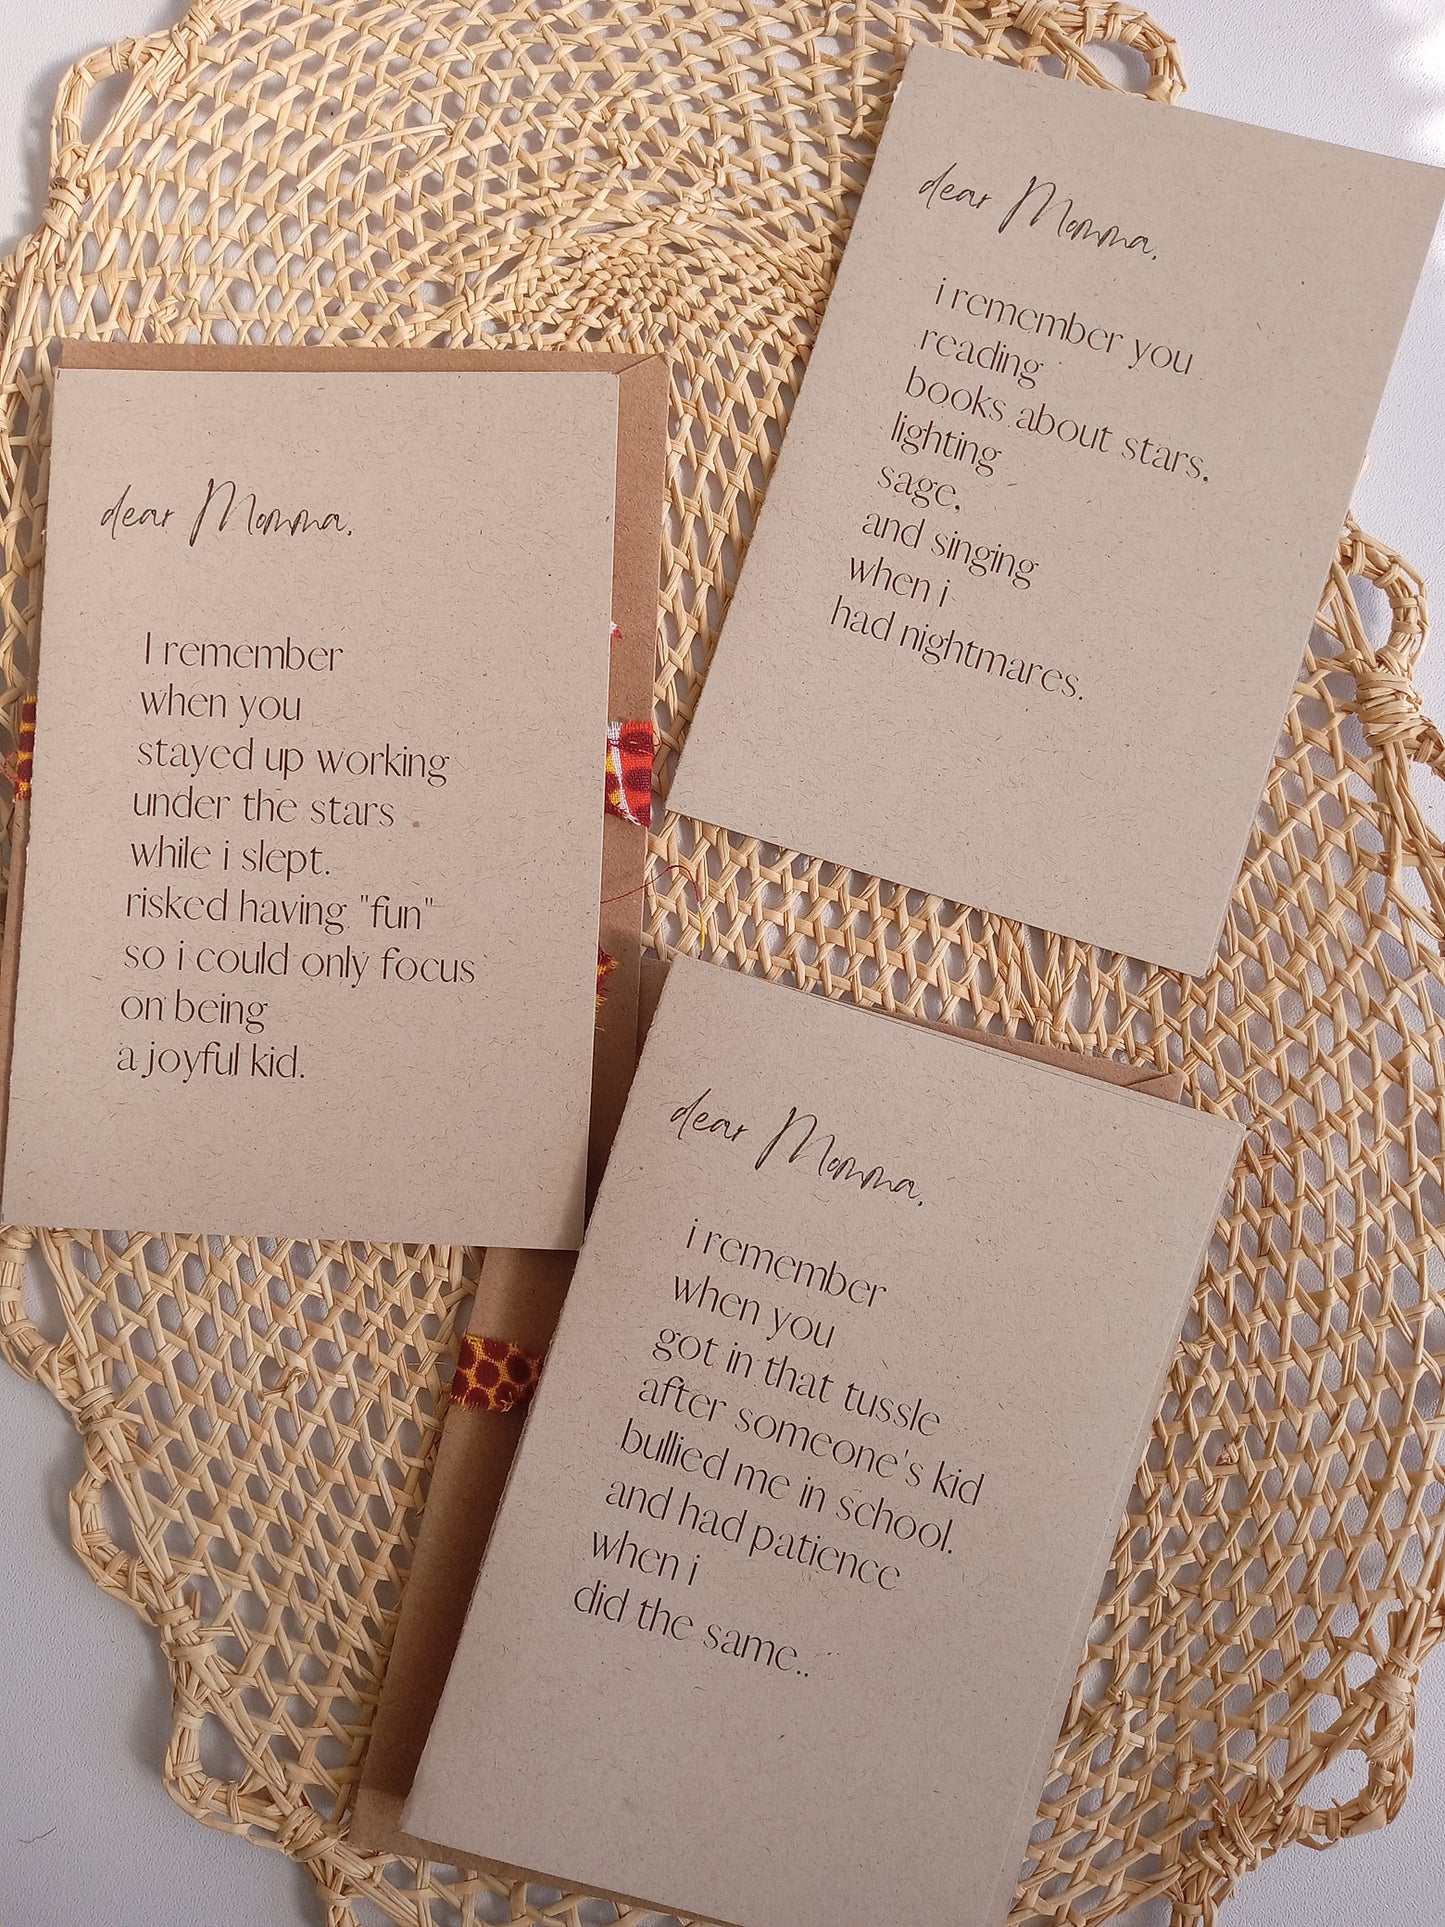 dear Momma,
I remember
when you
stayed up working
under the stars
while i slept.
risked having "fun"
so i could only focus
on being
a joyful kid.
dear Momma,
i remember you
reading
books about stars,
lighting
sage,
and singing
when i
had nightmares.
dear Momma,
i remember
when you
got in that tussle
after someone's kid
bullied me in school.
and had patience
when i
did the same..